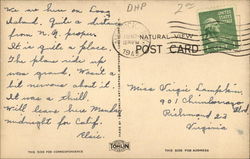 DHP 2¢
We are here on Long
Island. Quite a distance
from N.Y. proper
It is quite a place.
The plane ride up
was grand. Wasn't a
bit nervous about it.
It was a thrill.
Will leave here Monday
midnight for Calif.
Elsie.
NATURAL VIEW
POST CARD
Miss Virgie Lampkin
901 Chimborazo Blvd
Richmond 23
Virginia
THIS SIDE FOR CORRESPONDENCE
TOMLIN
THIS SIDE FOR ADDRESS